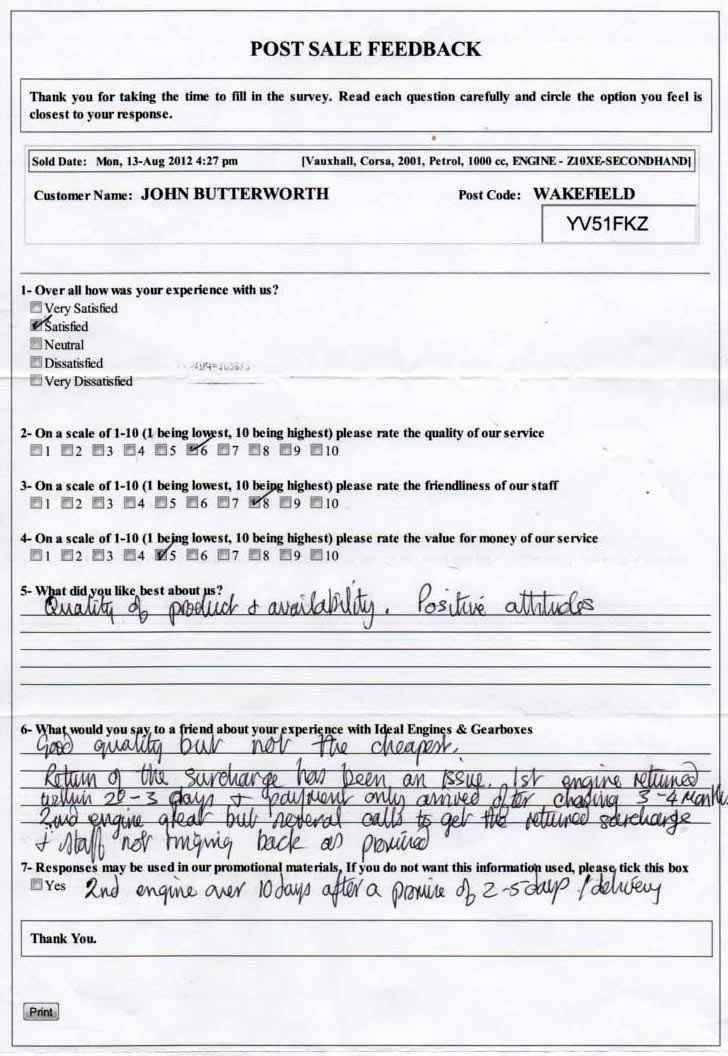 POST SALE FEEDBACK
Thank you for taking the time to fill in the survey. Read each question carefully and circle the option you feel is
closest to your response.
Sold Date: Mon, 13-Aug 2012 4:27 pm [Vauxhall, Corsa, 2001, Petrol, 1000 cc, ENGINE - Z10XE-SECONDHAND]
Customer Name: JOHN BUTTERWORTH Post Code: WAKEFIELD
YV51FKZ
1- Over all how was your experience with us?
Very Satisfied
Satisfied
Neutral
Dissatisfied
Very Dissatisfied
2- On a scale of 1-10 (1 being lowest, 10 being highest) please rate the quality of our service
1 2 3 4 5 6 7 8 9 10
3- On a scale of 1-10 (1 being lowest, 10 being highest) please rate the friendliness of our staff
1 2 3 4 5 6 7 8 9 10
4- On a scale of 1-10 (1 being lowest, 10 being highest) please rate the value for money of our service
1 2 3 4 5 6 7 8 9 10
5- What did you like best about us?
Quality of product & availability. Positive attitudes
6- What would you say to a friend about your experience with Ideal Engines & Gearboxes
Good quality but not the cheapest.
Return of the surcharge has been an issue. 1st engine returned
within 2-3 days & payment only arrived after chasing 3-4 months
2nd engine great but several calls to get the returned surcharge
& staff not ringing back as promised
7- Responses may be used in our promotional materials, If you do not want this information used, please tick this box
Yes 2nd engine over 10 days after a promise of 2-5 days delivery
Thank You.
Print